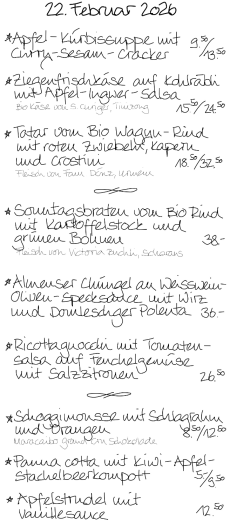 22. Februar 2026
* Apfel-Kürbissuppe mit 9.50/
Curry-Sesam-Cracker 13.50
* Ziegenfrischkäse auf Kohlrabi
mit Apfel-Ingwer-Salsa
Bio Käse von 15.50/24.50
* Tatar vom Bio Wagyu-Rind
mit roten Zwiebeln, Kapern
und Crostini 18.50/32.50
Fleisch von Fam.
* Sonntagsbraten vom Bio Rind
mit Kartoffelstock und
grünen Bohnen 38.-
Fleisch von
* Almenser Chüngel an Weisswein-
Oliven-Specksauce mit Wirz
und Domleschger Polenta 36.-
* Ricottagnocchi mit Tomaten-
salsa auf Fenchelgemüse
mit Salzzitronen 26.50
* Schoggimousse mit Schlagrahm
und Orangen 8.50/12.50
Maracaibo Schokolade
* Panna cotta mit Kiwi-Apfel-
Stachelbeerkompott 5.-/9.50
* Apfelstrudel mit
Vanillesauce 12.50